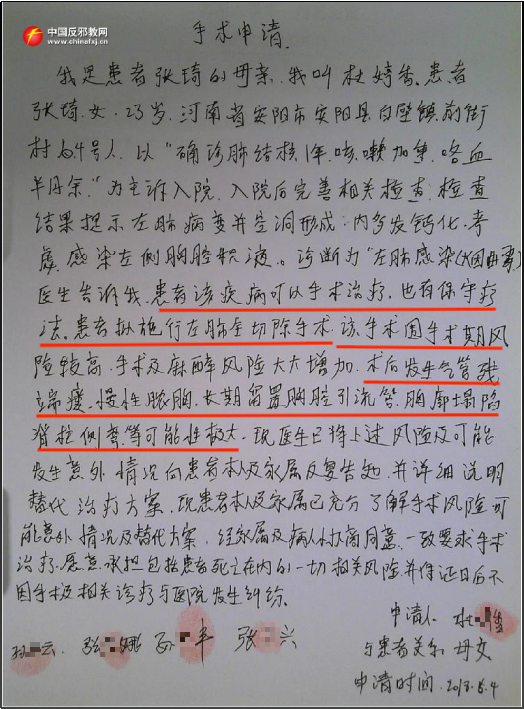 中国反邪教网
www.chinafxj.cn
手术申请.
我是患者张琦的母亲.我叫杜婷香.患者
张琦.女.23岁.河南省安阳市安阳县白壁镇前街
村64号人.以“确诊肺结核1年.咳嗽加重.咯血
半月余.”为主诉入院.入院后完善相关检查.检查
结果提示左肺病变并空洞形成:内多发钙化.考
虑.感染左侧胸腔积液。诊断为“左肺感染
医生告诉我.患者该疾病可以手术治疗.也有保守疗
法.患者拟施行左肺全切除手术.该手术围手术期风
险较高.手术及麻醉风险大大增加.术后发生气管残
端瘘.慢性脓胸.长期留置胸腔引流管.胸廓塌陷
脊柱侧弯等可能性极大.现医生已将上述风险及可能
发生意外情况向患者本人及家属反复告知.并详细说明
替代治疗方案.现患者本人及家属已充分了解手术风险可
能意外情况及替代方案.经家属及病人协商同意.一致要求手术
治疗.愿意承担包括患者死亡在内的一切相关风险并保证日后不
因手术及相关诊疗与医院发生纠纷.
申请人 杜
云. 张 娜 孙 平 张 兴
与患者关系 母女
申请时间.2013.5.4